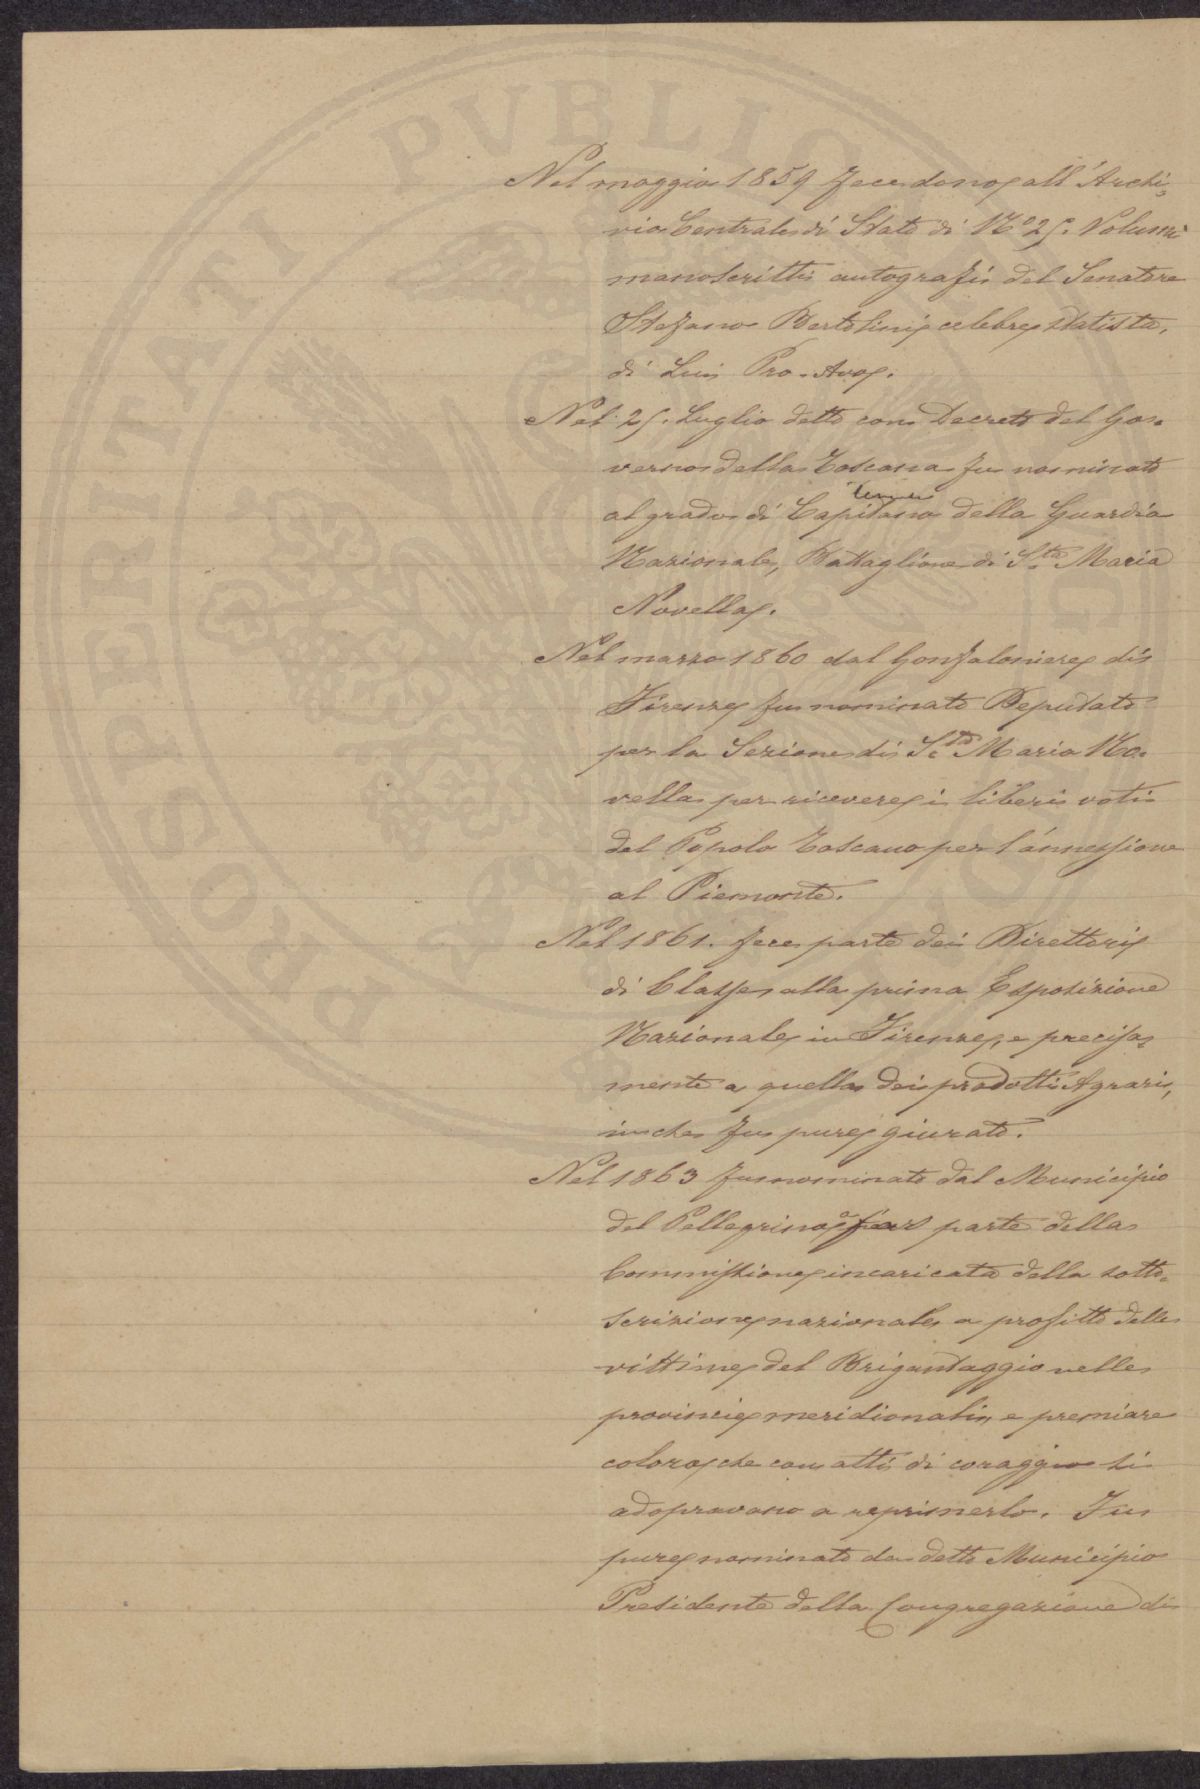 PROSPERITATI PVBLICAE
Nel maggio 1859 fece dono all'Archi=
vio Centrale di Stato di No 25. Volumi
manoscritti autografi del Senatore
Stefano Bertolini celebre statista,
di Lui Pro-Avo.
Nel 25. Luglio detto con Decreto del Go=
verno della Toscana fu nominato
al grado di Capitano della Guardia
Nazionale, Battaglione di Sta Maria
Novella.
Nel marzo 1860 dal Gonfaloniere di
Firenze fu nominato Deputato
per la Sezione di Sta Maria No=
vella per ricevere i liberi voti
del Popolo Toscano per l'annessione
al Piemonte.
Nel 1861. fece parte dei Direttori
di Classe alla prima Esposizione
Nazionale in Firenze, e precisa=
mente a quella dei prodotti Agrari,
in che fu pure giurato.
Nel 1863 fu nominato dal Municipio
del Pellegrino a far parte della
Commissione incaricata della sotto=
scrizione nazionale a profitto delle
vittime del Brigantaggio nelle
provincie meridionali, e premiare
coloro che con atti di coraggio si
adopravano a reprimerlo. Fu
pure nominato da detto Municipio
Presidente della Congregazione di